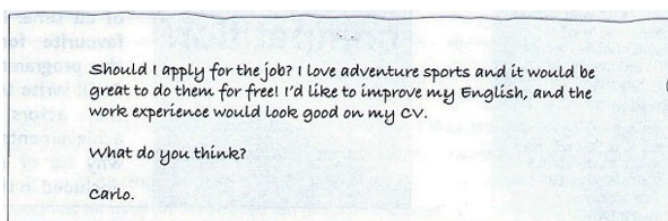 Should I apply for the job? I love adventure sports and it would be
great to do them for free! I'd like to improve my English, and the
work experience would look good on my CV.
What do you think?
Carlo.